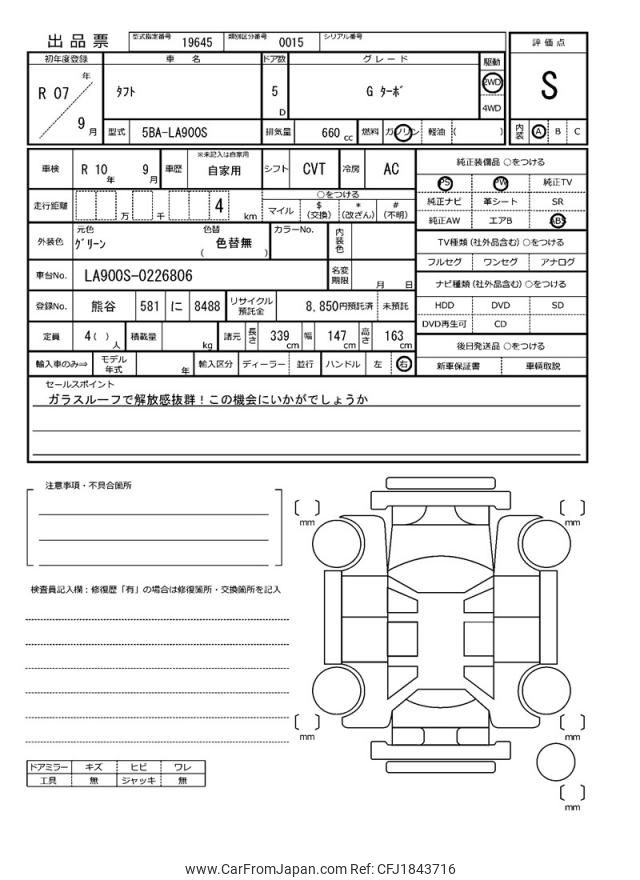 出品票 型式指定番号 19645 類別区分番号 0015 シリアル番号
評価点
S
初年度登録 車名 ドア数 グレード 駆動
R 07 年 9 月 タフト 5 D G ターボ 2WD 4WD
内装 A B C
型式 5BA-LA900S 排気量 660 cc 燃料 ガソリン 軽油 ( )
車検 R 10 年 9 月 車歴 ※未記入は自家用 自家用 シフト CVT 冷房 AC
純正装備品 ○をつける
PS PW 純正TV
純正ナビ 革シート SR
純正AW エアB ABS
走行距離 万 千 4 km
○をつける
マイル $ (交換) * (改ざん) # (不明)
外装色 元色 グリーン 色替 ( 色替無 ) カラーNo. 内装色
TV種類 (社外品含む) ○をつける
フルセグ ワンセグ アナログ
車台No. LA900S-0226806 名変期限 月 日
ナビ種類 (社外品含む) ○をつける
HDD DVD SD
DVD再生可 CD
登録No. 熊谷 581 に 8488 リサイクル預託金 8,850円預託済 未預託
定員 4 ( ) 人 積載量 kg 諸元 長さ 339 cm 幅 147 cm 高さ 163 cm
後日発送品 ○をつける
新車保証書 車輌取説
輸入車のみ⇒ モデル年式 年 輸入区分 ディーラー 並行 ハンドル 左 右
セールスポイント
ガラスルーフで解放感抜群！この機会にいかがでしょうか
注意事項・不具合箇所
検査員記入欄：修復歴「有」の場合は修復箇所・交換箇所を記入
mm
mm
mm
mm
mm
ドアミラー キズ ヒビ ワレ
工具 無 ジャッキ 無
www.CarFromJapan.com Ref: CFJ1843716